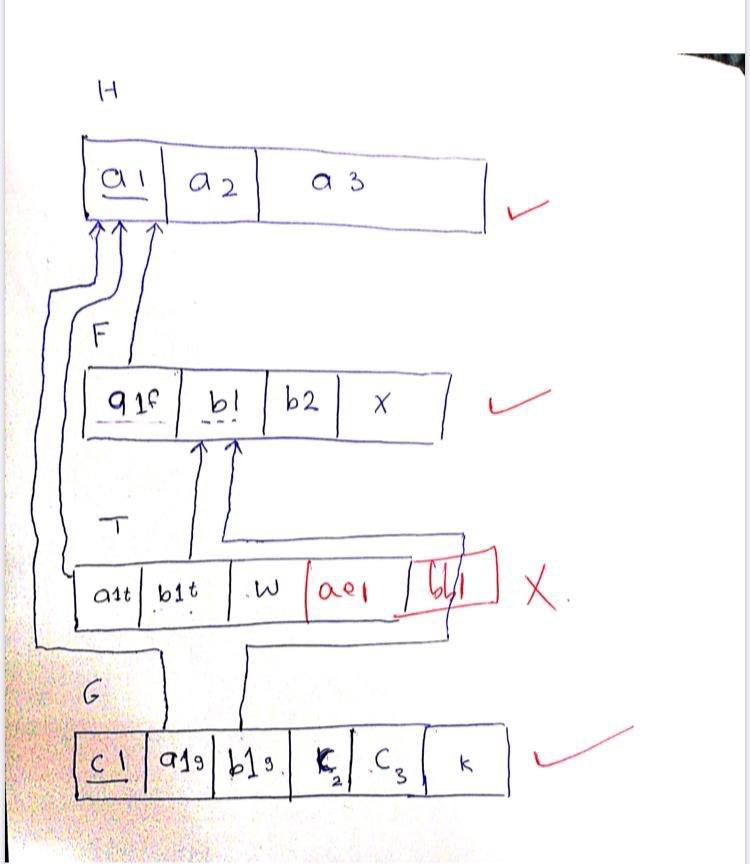 H
a1 a2 a3
F
a1f b1 b2 x
T
a1t b1t .W ae1 bb1 X.
G
c1 a1g b1g. C2 .C3 k